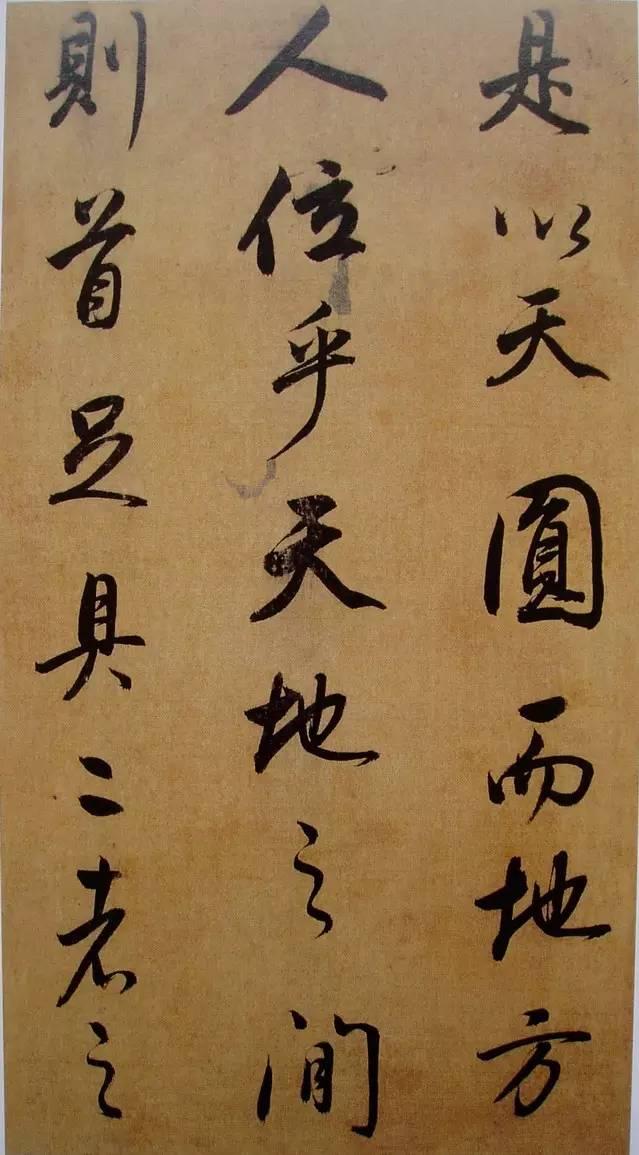 是以天圓而地方
人位乎天地之間
則首足具二者之